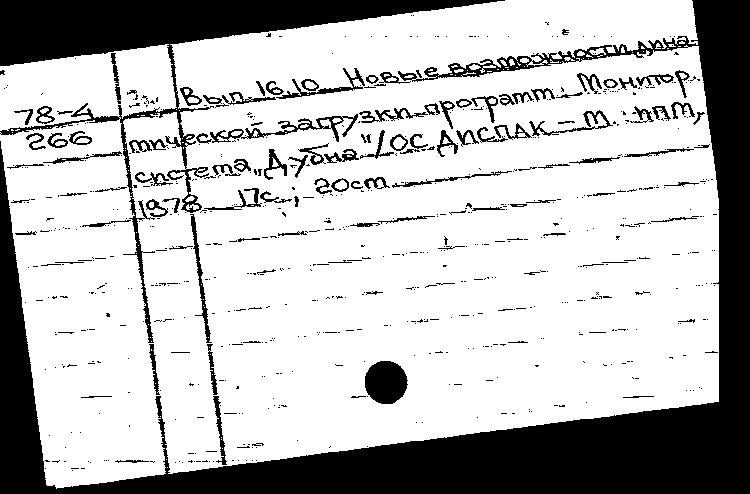 Вып. 16.10 Новые возможности дина-
78-4
266
мической загрузки программ: Монитор.
система "Дубна"/ОС ДИСПАК - М.: ИПМ,
1978 17с.; 20см